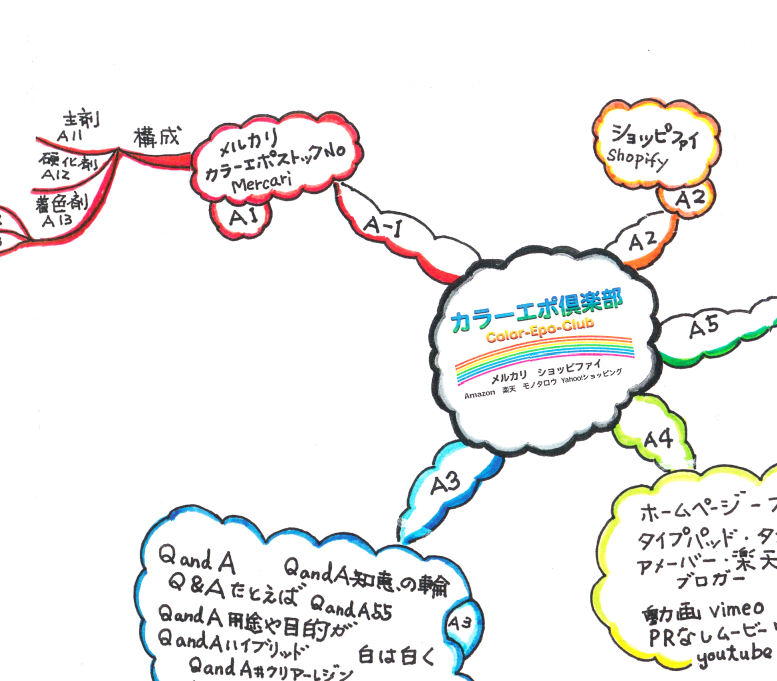 主剤
A11
構成
硬化剤
A12
着色剤
A13
メルカリ
カラーエポストックNo
Mercari
A1
A-1
ショッピファイ
Shopify
A2
A2
カラーエポ倶楽部
Color-Epo-Club
メルカリ ショッピファイ
Amazon 楽天 モノタロウ Yahoo!ショッピング
A5
A4
A3
Q and A QandA知恵の輪
Q&Aたとえば QandA55
QandA用途や目的が
A3
QandAハイブリッド
白は白く
QandA#クリアーレジン
ホームページ-ブ
タイプパッド・
アメーバー・楽天
ブロガー
動画 vimeo
PRなしムービー
youtube